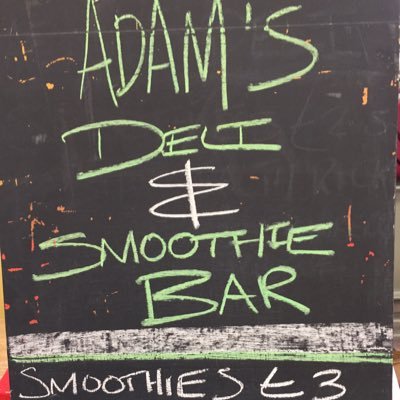 ADAM'S
DELI
&
SMOOTHIE
BAR
SMOOTHIES £3